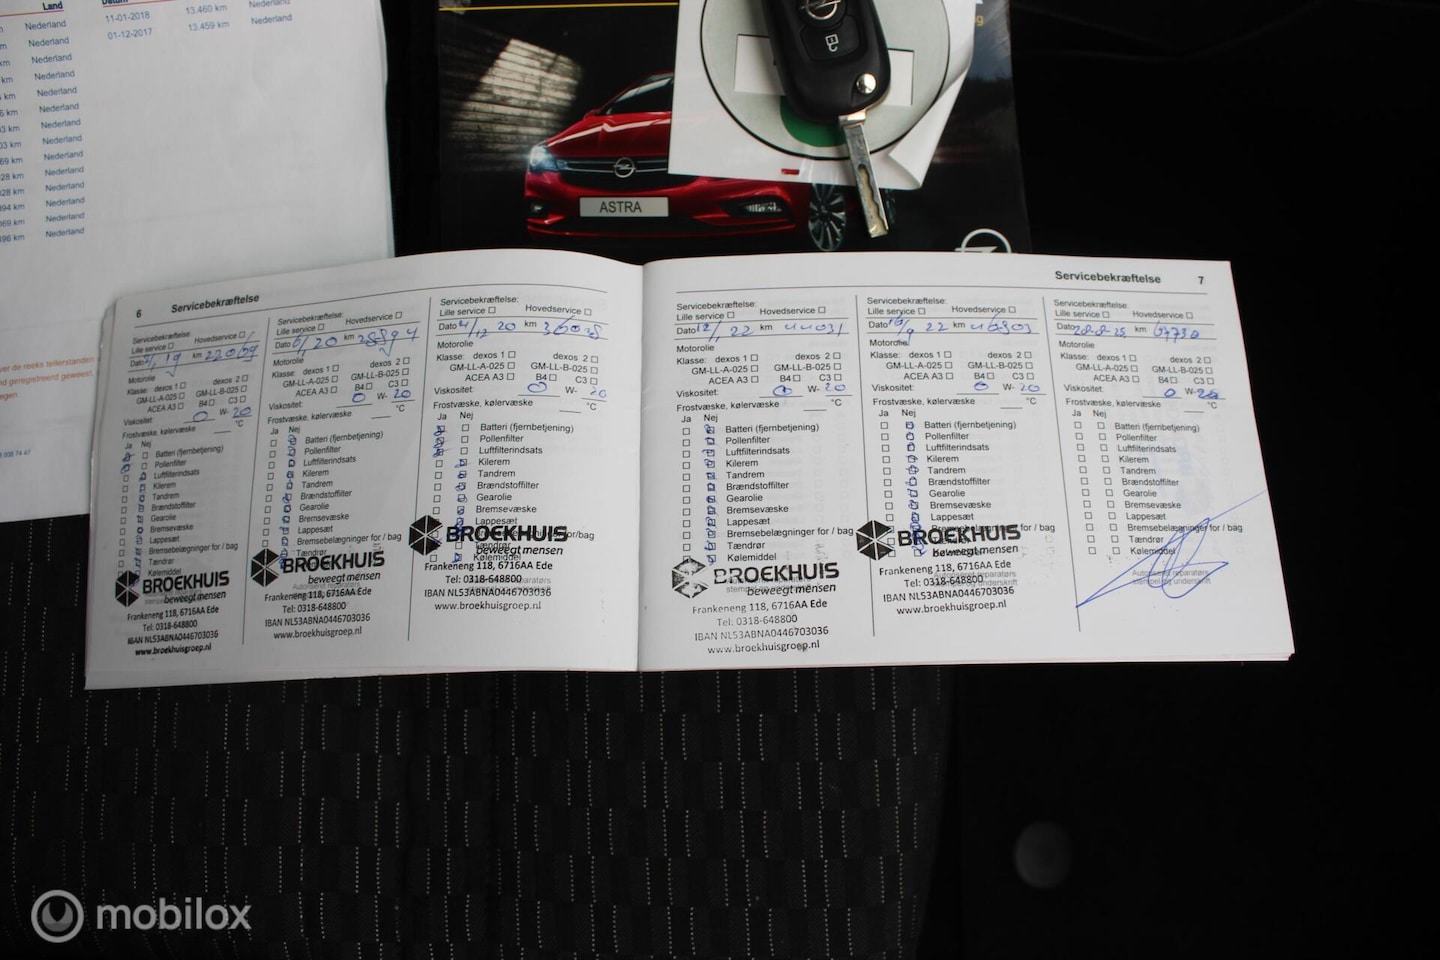 Land
Datum
Nederland
11-01-2018
13.460 km
Nederland
Nederland
01-12-2017
13.459 km
Nederland
Nederland
Nederland
Nederland
Nederland
Nederland
Nederland
Nederland
Nederland
Nederland
Nederland
Nederland
Nederland
ASTRA
6 Servicebekræftelse
Servicebekræftelse
Lille service Hovedservice
Dato km
Motorolie
Klasse: dexos 1 dexos 2
GM-LL-A-025 GM-LL-B-025
ACEA A3 B4 C3
Viskositet: 0 W- 20
Frostvæske, kølervæske °C
Ja Nej
Batteri (fjernbetjening)
Pollenfilter
Luftfilterindsats
Kilerem
Tandrem
Brændstoffilter
Gearolie
Bremsevæske
Lappesæt
Bremsebelægninger for / bag
Tændrør
Kølemiddel
BROEKHUIS
beweegt mensen
Frankeneng 118, 6716AA Ede
Tel: 0318-648800
IBAN NL53ABNA0446703036
www.broekhuisgroep.nl
Servicebekræftelse:
Lille service Hovedservice
Dato 6/20 km 28894
Motorolie
Klasse: dexos 1 dexos 2
GM-LL-A-025 GM-LL-B-025
ACEA A3 B4 C3
Viskositet: 0 W- 20
Frostvæske, kølervæske °C
Ja Nej
Batteri (fjernbetjening)
Pollenfilter
Luftfilterindsats
Kilerem
Tandrem
Brændstoffilter
Gearolie
Bremsevæske
Lappesæt
Bremsebelægninger for / bag
Tændrør
BROEKHUIS
beweegt mensen
Frankeneng 118, 6716AA Ede
Tel: 0318-648800
IBAN NL53ABNA0446703036
www.broekhuisgroep.nl
Servicebekræftelse:
Lille service Hovedservice
Dato km
Motorolie
Klasse: dexos 1 dexos 2
GM-LL-A-025 GM-LL-B-025
ACEA A3 B4 C3
Viskositet: 0 W- 20
Frostvæske, kølervæske °C
Ja Nej
Batteri (fjernbetjening)
Pollenfilter
Luftfilterindsats
Kilerem
Tandrem
Brændstoffilter
Gearolie
Bremsevæske
Lappesæt
for/bag
Tændrør
Kølemiddel
BROEKHUIS
beweegt mensen
Frankeneng 118, 6716AA Ede
Tel: 0318-648800
IBAN NL53ABNA0446703036
www.broekhuisgroep.nl
Servicebekræftelse 7
Servicebekræftelse:
Lille service Hovedservice
Dato 12/22 km 44031
Motorolie
Klasse: dexos 1 dexos 2
GM-LL-A-025 GM-LL-B-025
ACEA A3 B4 C3
Viskositet: 0 W- 20
Frostvæske, kølervæske °C
Ja Nej
Batteri (fjernbetjening)
Pollenfilter
Luftfilterindsats
Kilerem
Tandrem
Brændstoffilter
Gearolie
Bremsevæske
Lappesæt
Bremsebelægninger for / bag
Tændrør
Kølemiddel
BROEKHUIS
beweegt mensen
Frankeneng 118, 6716AA Ede
Tel: 0318-648800
IBAN NL53ABNA0446703036
www.broekhuisgroep.nl
Servicebekræftelse:
Lille service Hovedservice
Dato km
Motorolie
Klasse: dexos 1 dexos 2
GM-LL-A-025 GM-LL-B-025
ACEA A3 B4 C3
Viskositet: 0 W- 20
Frostvæske, kølervæske °C
Ja Nej
Batteri (fjernbetjening)
Pollenfilter
Luftfilterindsats
Kilerem
Tandrem
Brændstoffilter
Gearolie
Bremsevæske
Lappesæt
Bremsebelægninger for / bag
Tændrør
Kølemiddel
BROEKHUIS
beweegt mensen
Frankeneng 118, 6716AA Ede
Tel: 0318-648800
IBAN NL53ABNA0446703036
www.broekhuisgroep.nl
Servicebekræftelse:
Lille service Hovedservice
Dato km
Motorolie
Klasse: dexos 1 dexos 2
GM-LL-A-025 GM-LL-B-025
ACEA A3 B4 C3
Viskositet: 0 W- 20
Frostvæske, kølervæske °C
Ja Nej
Batteri (fjernbetjening)
Pollenfilter
Luftfilterindsats
Kilerem
Tandrem
Brændstoffilter
Gearolie
Bremsevæske
Lappesæt
Bremsebelægninger for / bag
Tændrør
Kølemiddel
mobilox